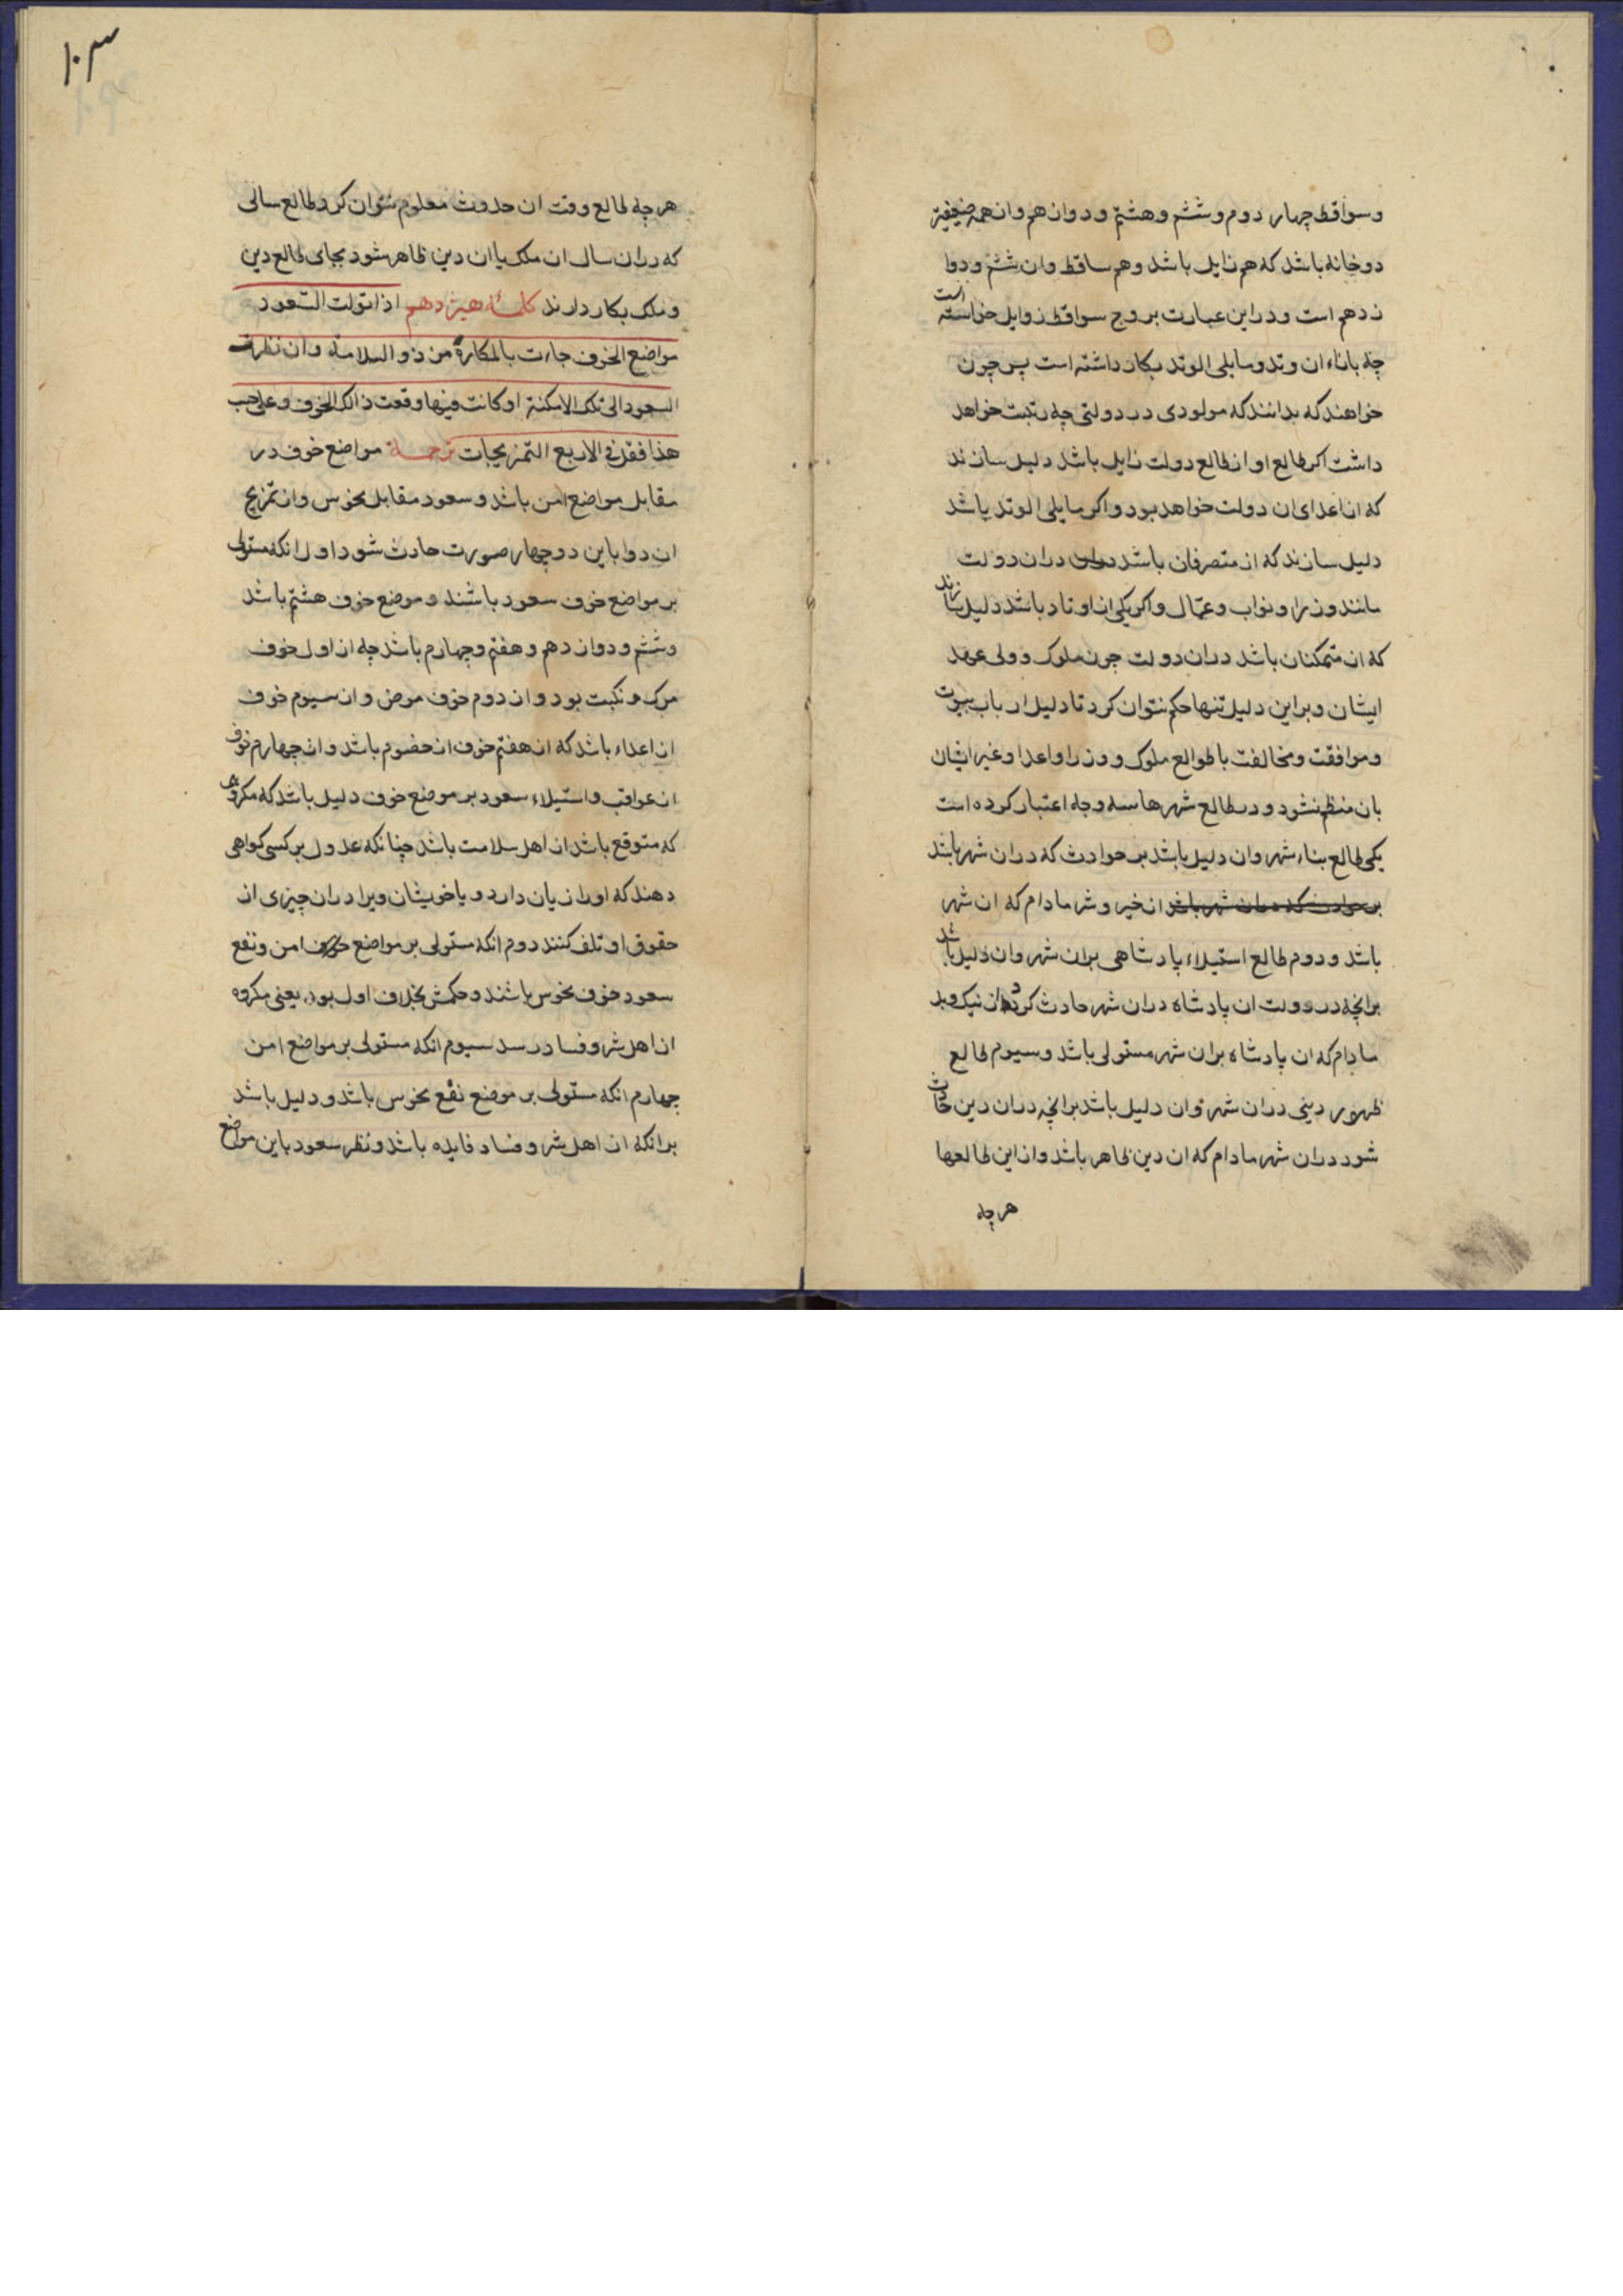 وسواقط چهار دوم وششم وهشتم ودوازدهم وان همه ضعیفیه
دوخانه باشد که هم زایل باشد وهم ساقط وان ششم ودوا
زدهم است ودراین عبارت بروج سواقط زوایل خواسته است
چه بازاء ان وتد ومایلی الوتد بکار داشته است پس چون
خواهند که بدانند که مولودی در دولتی چه رتبت خواهد
داشت اکر طالع او از طالع دولت زایل باشد دلیل سازند
که از اعدای ان دولت خواهد بود واکر مایلی الوتد باشد
دلیل سازند که از متصرفان باشد دران دولت
مانند وزرا ونواب وعمّال واکر یکی از اوتاد باشد دلیل سازند
که از متمکنان باشد دران دولت چون ملوک وولی عهد
ایشان وبر این دلیل تنها حکم نتوان کرد تا دلیل ارباب بیوت
وموافقت ومخالفت با طوالع ملوک ووزرا واعدا وغیر ایشان
بان منظم نشود ودر طالع شهرها سه وجه اعتبار کرده است
یکی طالع بناء شهر وان دلیل باشد بر حوادث که دران شهر باشد
بر حوادث که دران شهر باشد از خیر وشر مادام که ان شهر
باشد ودوم طالع استیلاء پادشاهی بران شهر وان دلیل باشد
برانچه در دولت ان پادشاه دران شهر حادث کردد از نیک وبد
مادام که ان پادشاه بران شهر مستولی باشد وسیوم طالع
ظهور دینی دران شهر وان دلیل باشد برانچه دران دین حادث
شود دران شهر مادام که ان دین ظاهر باشد واز این طالعها
هرچه
۱۰۳
هرچه طالع وقت ان حدوث معلوم نتوان کرد طالع سالی
که دران سال ان ملک یا ان دین ظاهر شود بجای طالع دین
وملک بکار دارند کلمهٔ هیژدهم اذا تولت السعود
مواضع الخوف جاءت بالمکارهٔ من ذو السلامة وان نظرت
السعود الی تلک الامکنة او کانت فیها وقعت ذالک الخوف وعلی حسب
هذا فقل فی الاربع التمزیجات ترجمة مواضع خوف در
مقابل مواضع امن باشد وسعود مقابل نحوس واز تمزیج
ان دو با این دو چهار صورت حادث شود اول انکه مستولی
بر مواضع خوف سعود باشند وموضع خوف هشتم باشد
وششم ودوازدهم وهفتم وچهارم باشد چه از اول خوف
مرک ونکبت بود واز دوم خوف مرض واز سیوم خوف
از اعداء باشد که از هفتم خوف از خصوم باشد واز چهارم خوف
از عواقب واستیلاء سعود بر موضع خوف دلیل باشد که مکروهی
که متوقع باشد از اهل سلامت باشد چنانکه عدول بر کسی کواهی
دهند که اورا زیان دارد ویا خویشان ویرا دران چیزی از
حقوق او تلف کنند دوم انکه مستولی بر مواضع امن ونفع
سعود خوف نحوس باشند وحکمش بخلاف اول بود یعنی مکروه
از اهل شر وفساد رسد سیوم انکه مستولی بر مواضع امن
چهارم انکه مستولی بر موضع نفع نحوس باشد ودلیل باشد
برانکه از اهل شر وفساد فایده باشد ونظر سعود باین مواضع